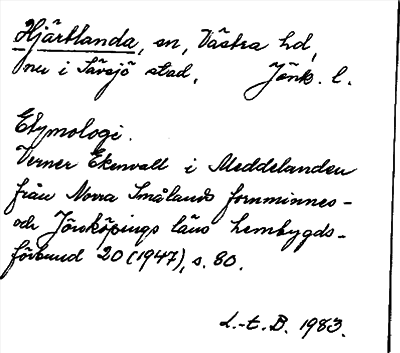 Hjärtlanda, sn, Västra hd,
nu i Sävsjö stad. Jönk. l.
Etymologi.
Verner Ekenvall i Meddelanden
från Norra Smålands fornminnes-
och Jönköpings läns hembygds-
förbund 20 (1947), s. 80.
L.-t. B. 1983.